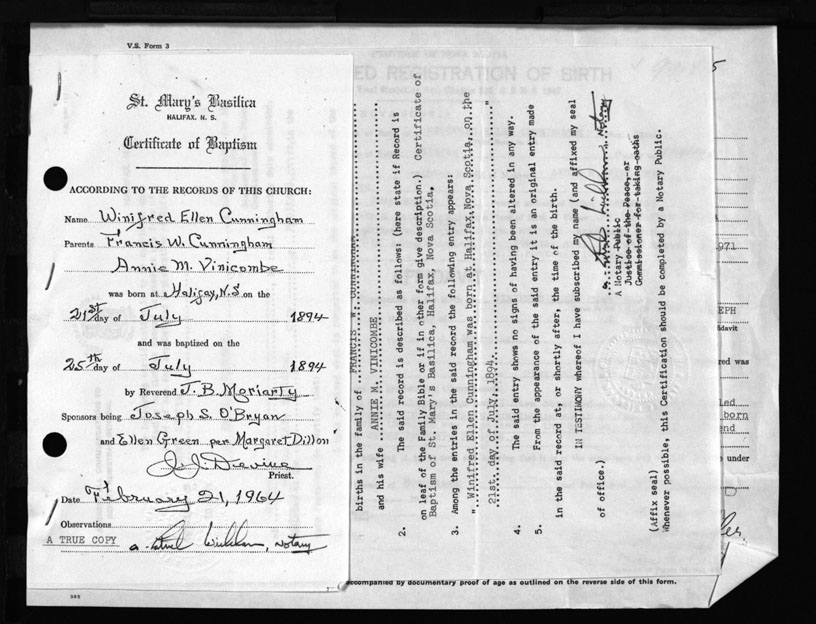 V.S. Form 3
St. Mary's Basilica
HALIFAX. N. S.
Certificate of Baptism
ACCORDING TO THE RECORDS OF THIS CHURCH:
Name Winifred Ellen Cunningham
Parents Francis W. Cunningham
Annie M. Vinicombe
was born at Halifax, N.S. on the
21st day of July 1894
and was baptized on the
25th day of July 1894
by Reverend J. B. Moriarty
Sponsors being Joseph S. O'Bryan
and Ellen Green per Margaret Dillon
J. J. Devine
Priest.
Date February 21, 1964
Observations
A TRUE COPY a. Notary
ED REGISTRATION OF BIRTH
births in the family of FRANCIS W. CUNNINGHAM
and his wife ANNIE M. VINICOMBE
2. The said record is described as follows: (here state if Record is
on leaf of the Family Bible or if in other form give description.) Certificate of
Baptism of St. Mary's Basilica, Halifax, Nova Scotia,
3. Among the entries in the said record the following entry appears:
" Winifred Ellen Cunningham was born at Halifax, Nova Scotia, on the
21st. day of July, 1894. "
4. The said entry shows no signs of having been altered in any way.
5. From the appearance of the said entry it is an original entry made
in the said record at, or shortly after, the time of the birth.
IN TESTIMONY whereof I have subscribed my name (and affixed my seal
of office.)
Notary
A Notary Public
Justice of the Peace, or
Commissioner for taking oaths
(Affix seal)
Whenever possible, this Certification should be completed by a Notary Public.
5
971
EPH
fidavit
red was
led
born
end
s under
accompanied by documentary proof of age as outlined on the reverse side of this form.